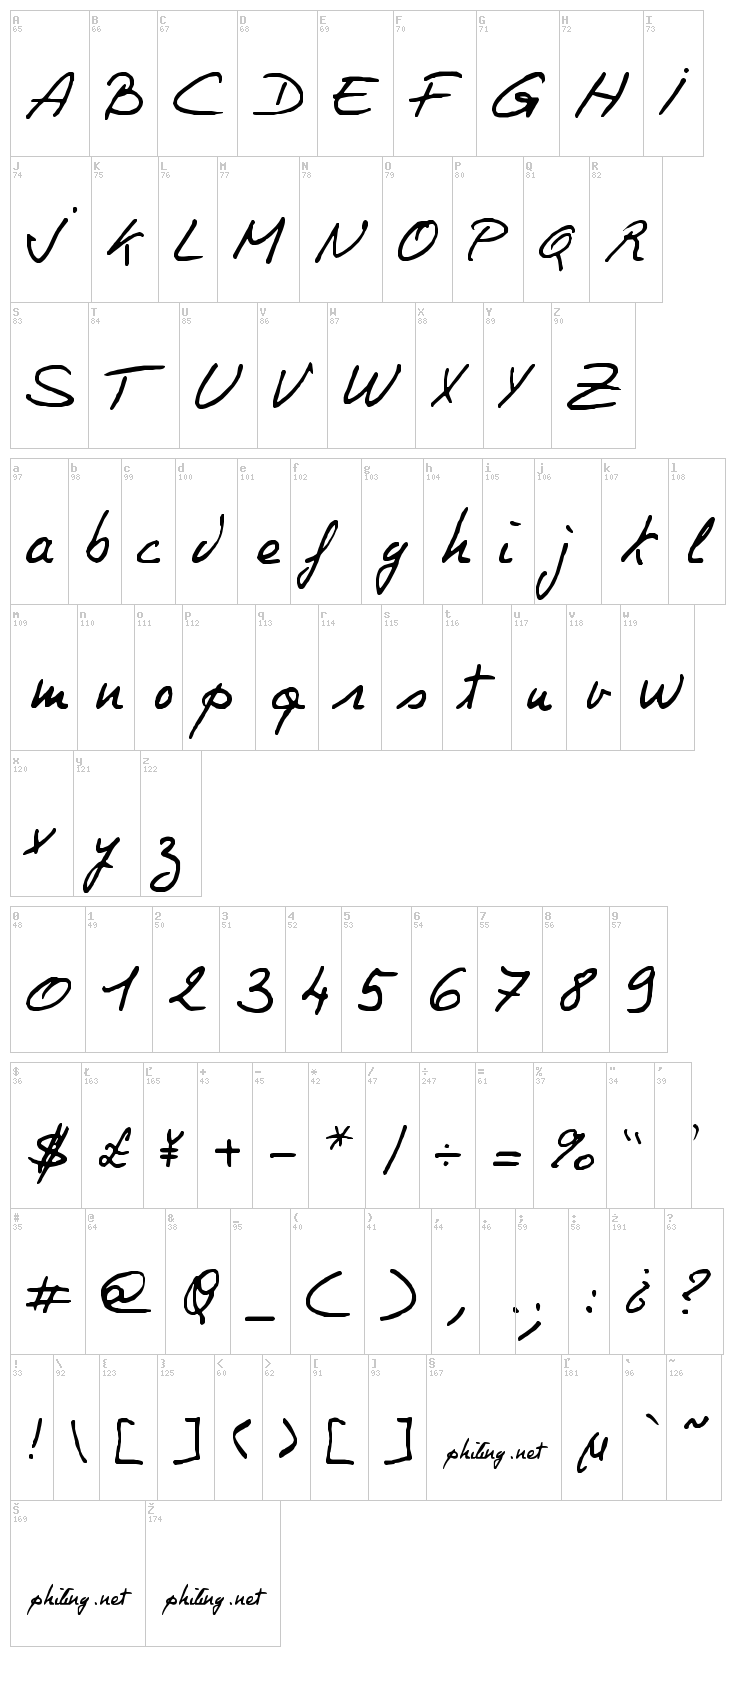 A B C D E F G H I
65 66 67 68 69 70 71 72 73
A B C D E F G H I
J K L M N O P Q R
74 75 76 77 78 79 80 81 82
J K L M N O P Q R
S T U V W X Y Z
83 84 85 86 87 88 89 90
S T U V W X Y Z
a b c d e f g h i j k l
97 98 99 100 101 102 103 104 105 106 107 108
a b c d e f g h i j k l
m n o p q r s t u v w
109 110 111 112 113 114 115 116 117 118 119
m n o p q r s t u v w
x y z
120 121 122
x y z
0 1 2 3 4 5 6 7 8 9
48 49 50 51 52 53 54 55 56 57
0 1 2 3 4 5 6 7 8 9
$ Ł Ľ + - * / ÷ = % " '
36 163 165 43 45 42 47 247 61 37 34 39
$ £ ¥ + - * / ÷ = % " '
# @ & _ ( ) , . ; : ż ?
35 64 38 95 40 41 44 46 59 58 191 63
# @ & _ ( ) , . ; : ¿ ?
! \ { } < > [ ] § ľ ` ~
33 92 123 125 60 62 91 93 167 181 96 126
! \ [ ] < > [ ] philing.net µ ` ~
Š Ž
169 174
philing.net philing.net